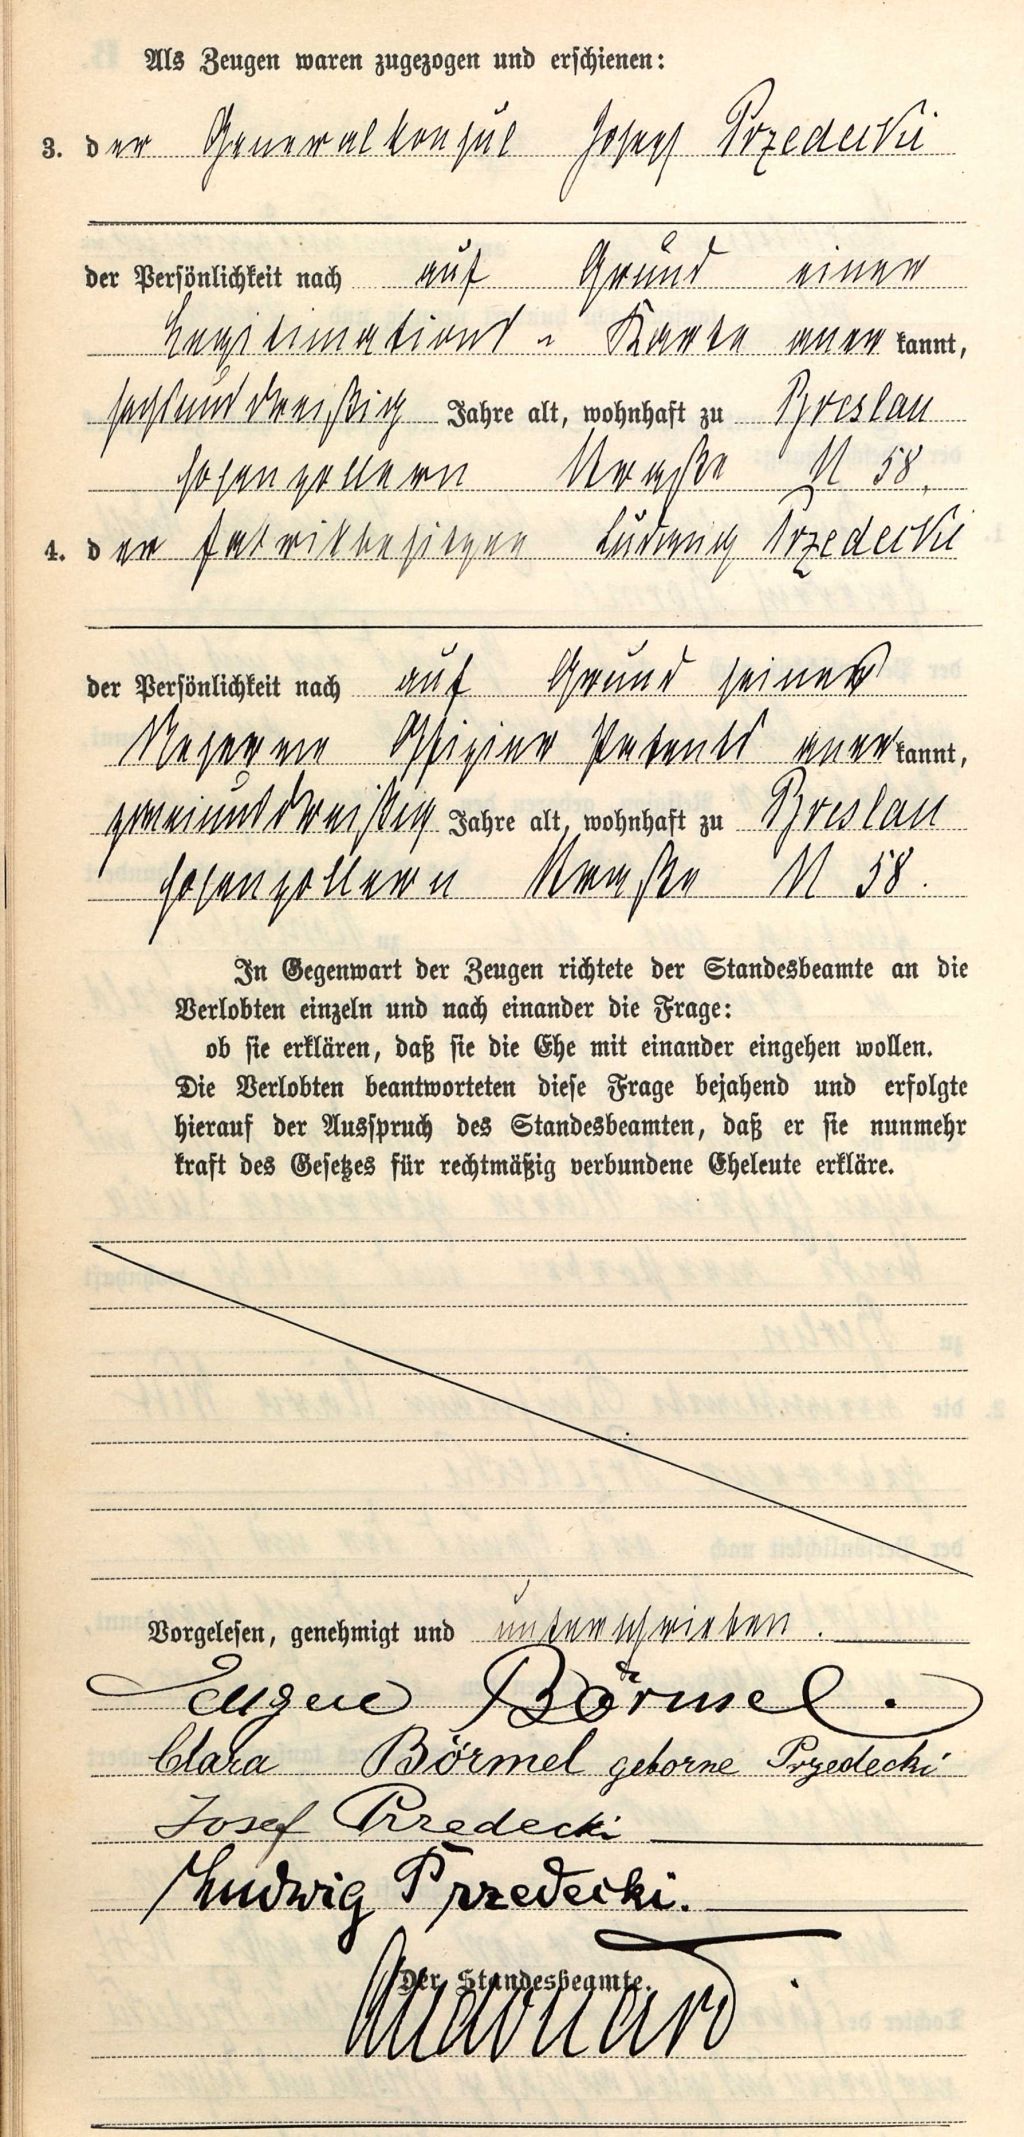 Als Zeugen waren zugezogen und erschienen:
3. der Generalkonsul Josef Przedecki
der Persönlichkeit nach auf Grund einer
Legitimations-Karte anerkannt,
sechsunddreißig Jahre alt, wohnhaft zu Breslau
Hohenzollern Straße N 58,
4. der Fabrikbesitzer Ludwig Przedecki
der Persönlichkeit nach auf Grund seines
Reserve Offizier Patents anerkannt,
zweiunddreißig Jahre alt, wohnhaft zu Breslau
Hohenzollern Straße N 58.
In Gegenwart der Zeugen richtete der Standesbeamte an die
Verlobten einzeln und nach einander die Frage:
ob sie erklären, daß sie die Ehe mit einander eingehen wollen.
Die Verlobten beantworteten diese Frage bejahend und erfolgte
hierauf der Ausspruch des Standesbeamten, daß er sie nunmehr
kraft des Gesetzes für rechtmäßig verbundene Eheleute erkläre.
Vorgelesen, genehmigt und unterschrieben.
Eugene Börmel.
Clara Börmel geborne Przedecki
Josef Przedecki
Ludwig Przedecki.
Der Standesbeamte.